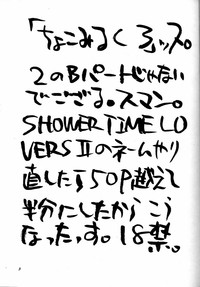 「ちょこみるく」っス。
2のBパートじゃない
でござる。スマン。
SHOWER TIME LO
VERS IIのネームやり
直したら50P越えて
半分にしたからこう
なったっす。18禁。